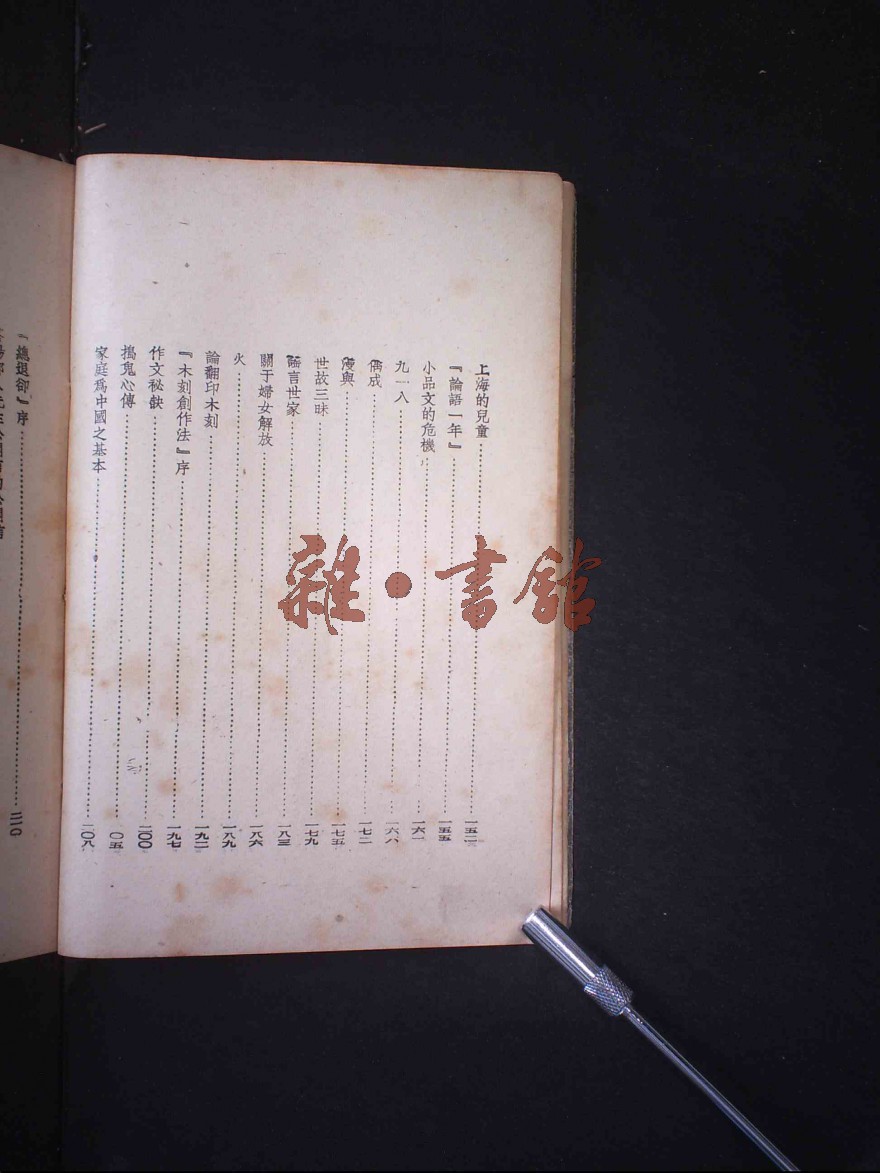 上海的兒童……一五二
『論語一年』……一五五
小品文的危機……一六一
九一八……一六八
偶成……一七二
漫與……一七五
世故三昧……一七九
謠言世家……一八三
關于婦女解放……一八六
火……一八九
論翻印木刻……一九二
『木刻創作法』序……一九七
作文秘訣……二〇〇
搗鬼心傳……〇五
家庭爲中國之基本……二〇八
『總退卻』序……
雜·書館